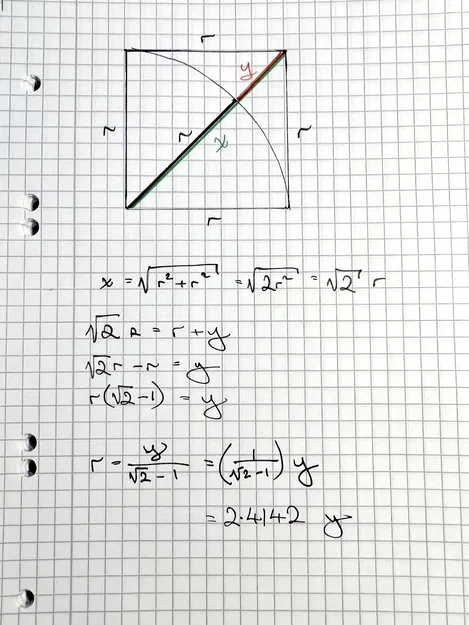 r
y
r
r
r
x
r
x = √(r² + r²) = √(2r²) = √2 r
√2 r = r + y
√2 r - r = y
r(√2 - 1) = y
r = y/(√2 - 1) = (1/(√2 - 1)) y
= 2.4142 y